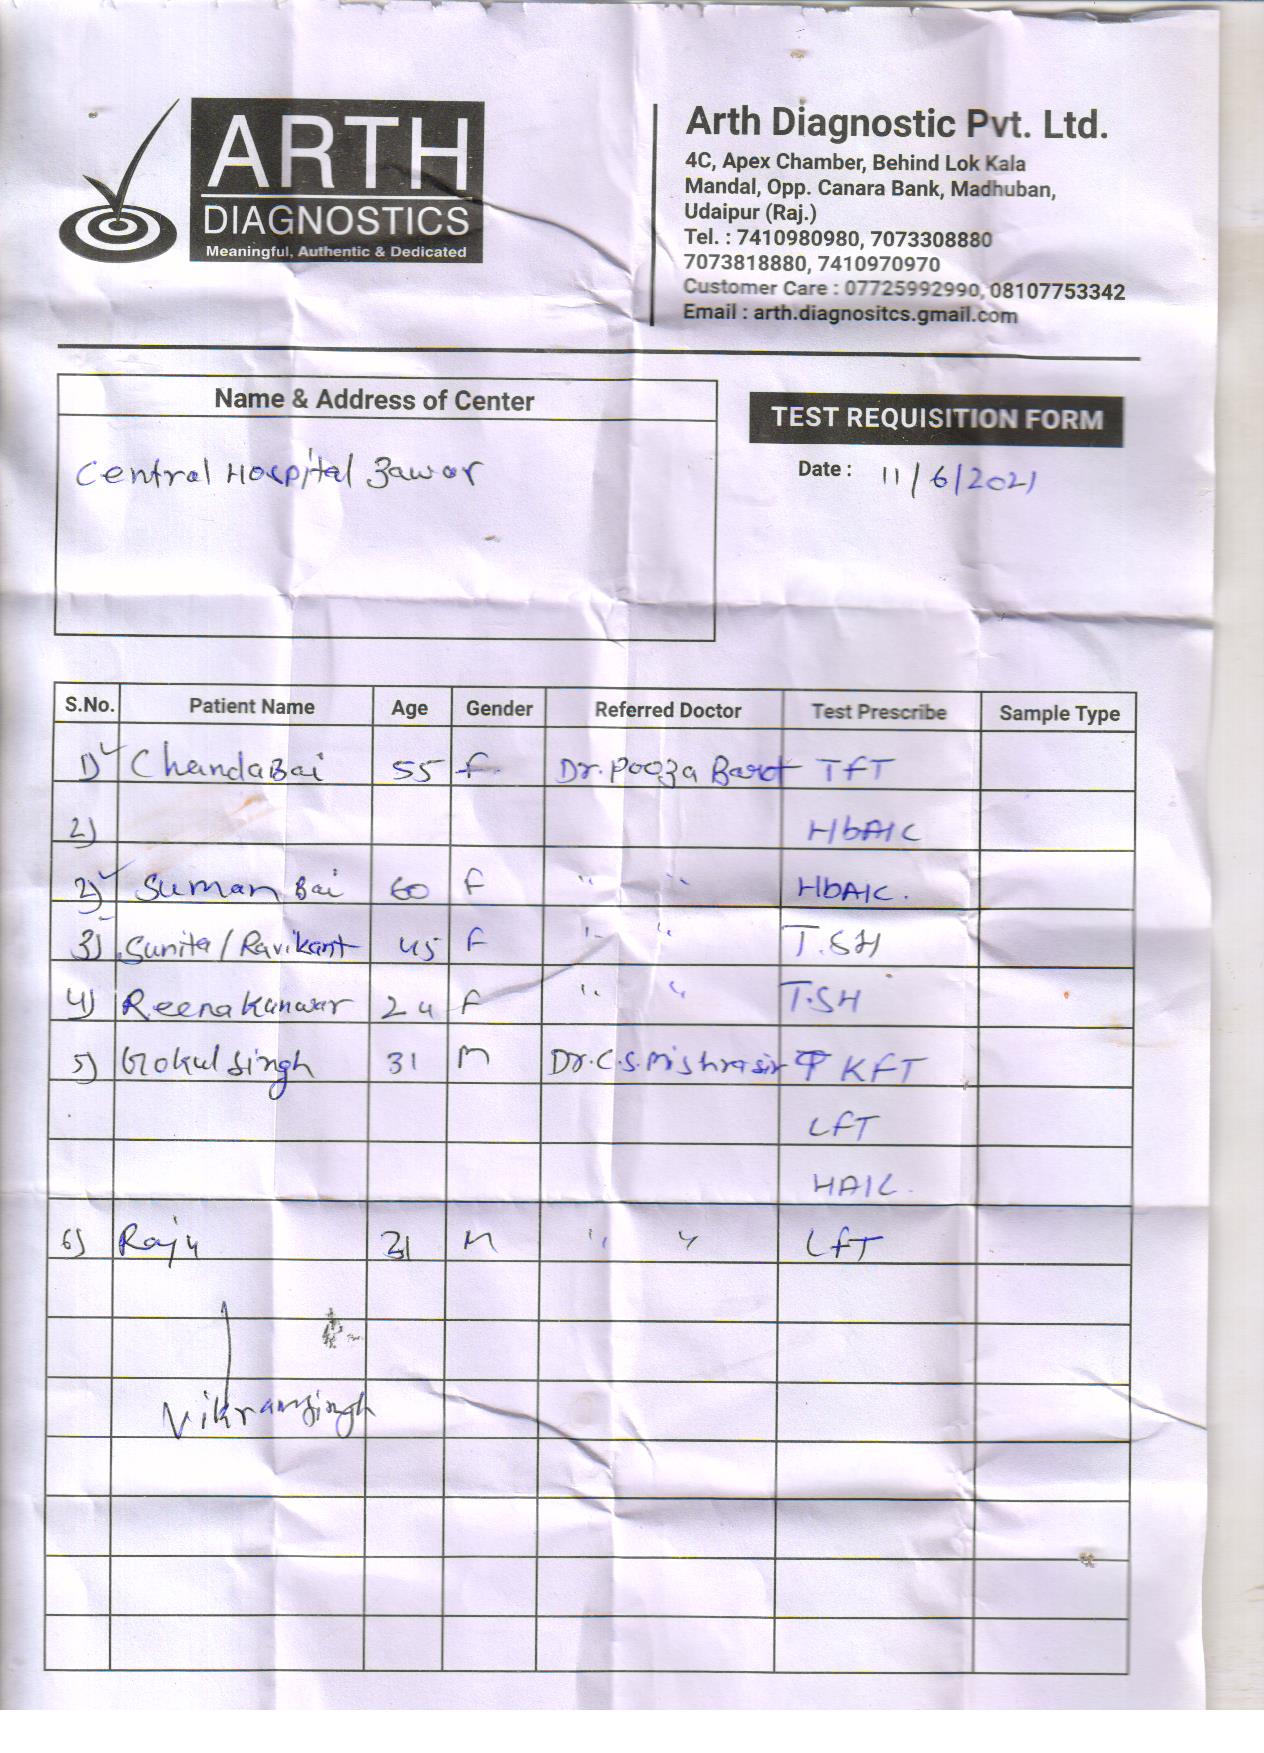 ARTH
DIAGNOSTICS
Meaningful, Authentic & Dedicated
Arth Diagnostic Pvt. Ltd.
4C, Apex Chamber, Behind Lok Kala
Mandal, Opp. Canara Bank, Madhuban,
Udaipur (Raj.)
Tel. : 7410980980, 7073308880
7073818880, 7410970970
Customer Care : 07725992990, 08107753342
Email : arth.diagnositcs.gmail.com
Name & Address of Center
Central Hospital Zawar
TEST REQUISITION FORM
Date : 11/6/2021
S.No. Patient Name Age Gender Referred Doctor Test Prescribe Sample Type
1) Chanda Bai 55 F Dr. Pooza Barot TFT
2) HbA1C
2) Suman Bai 60 F " " HbA1C.
3) Sunita / Ravikant 45 F " " T.SH
4) Reena Kunwar 24 F " " T.SH
5) Gokul Singh 31 M Dr. C.S. Mishra sir KFT
LFT
HA1C.
6) Raju 31 M " " LFT
Vikram Singh